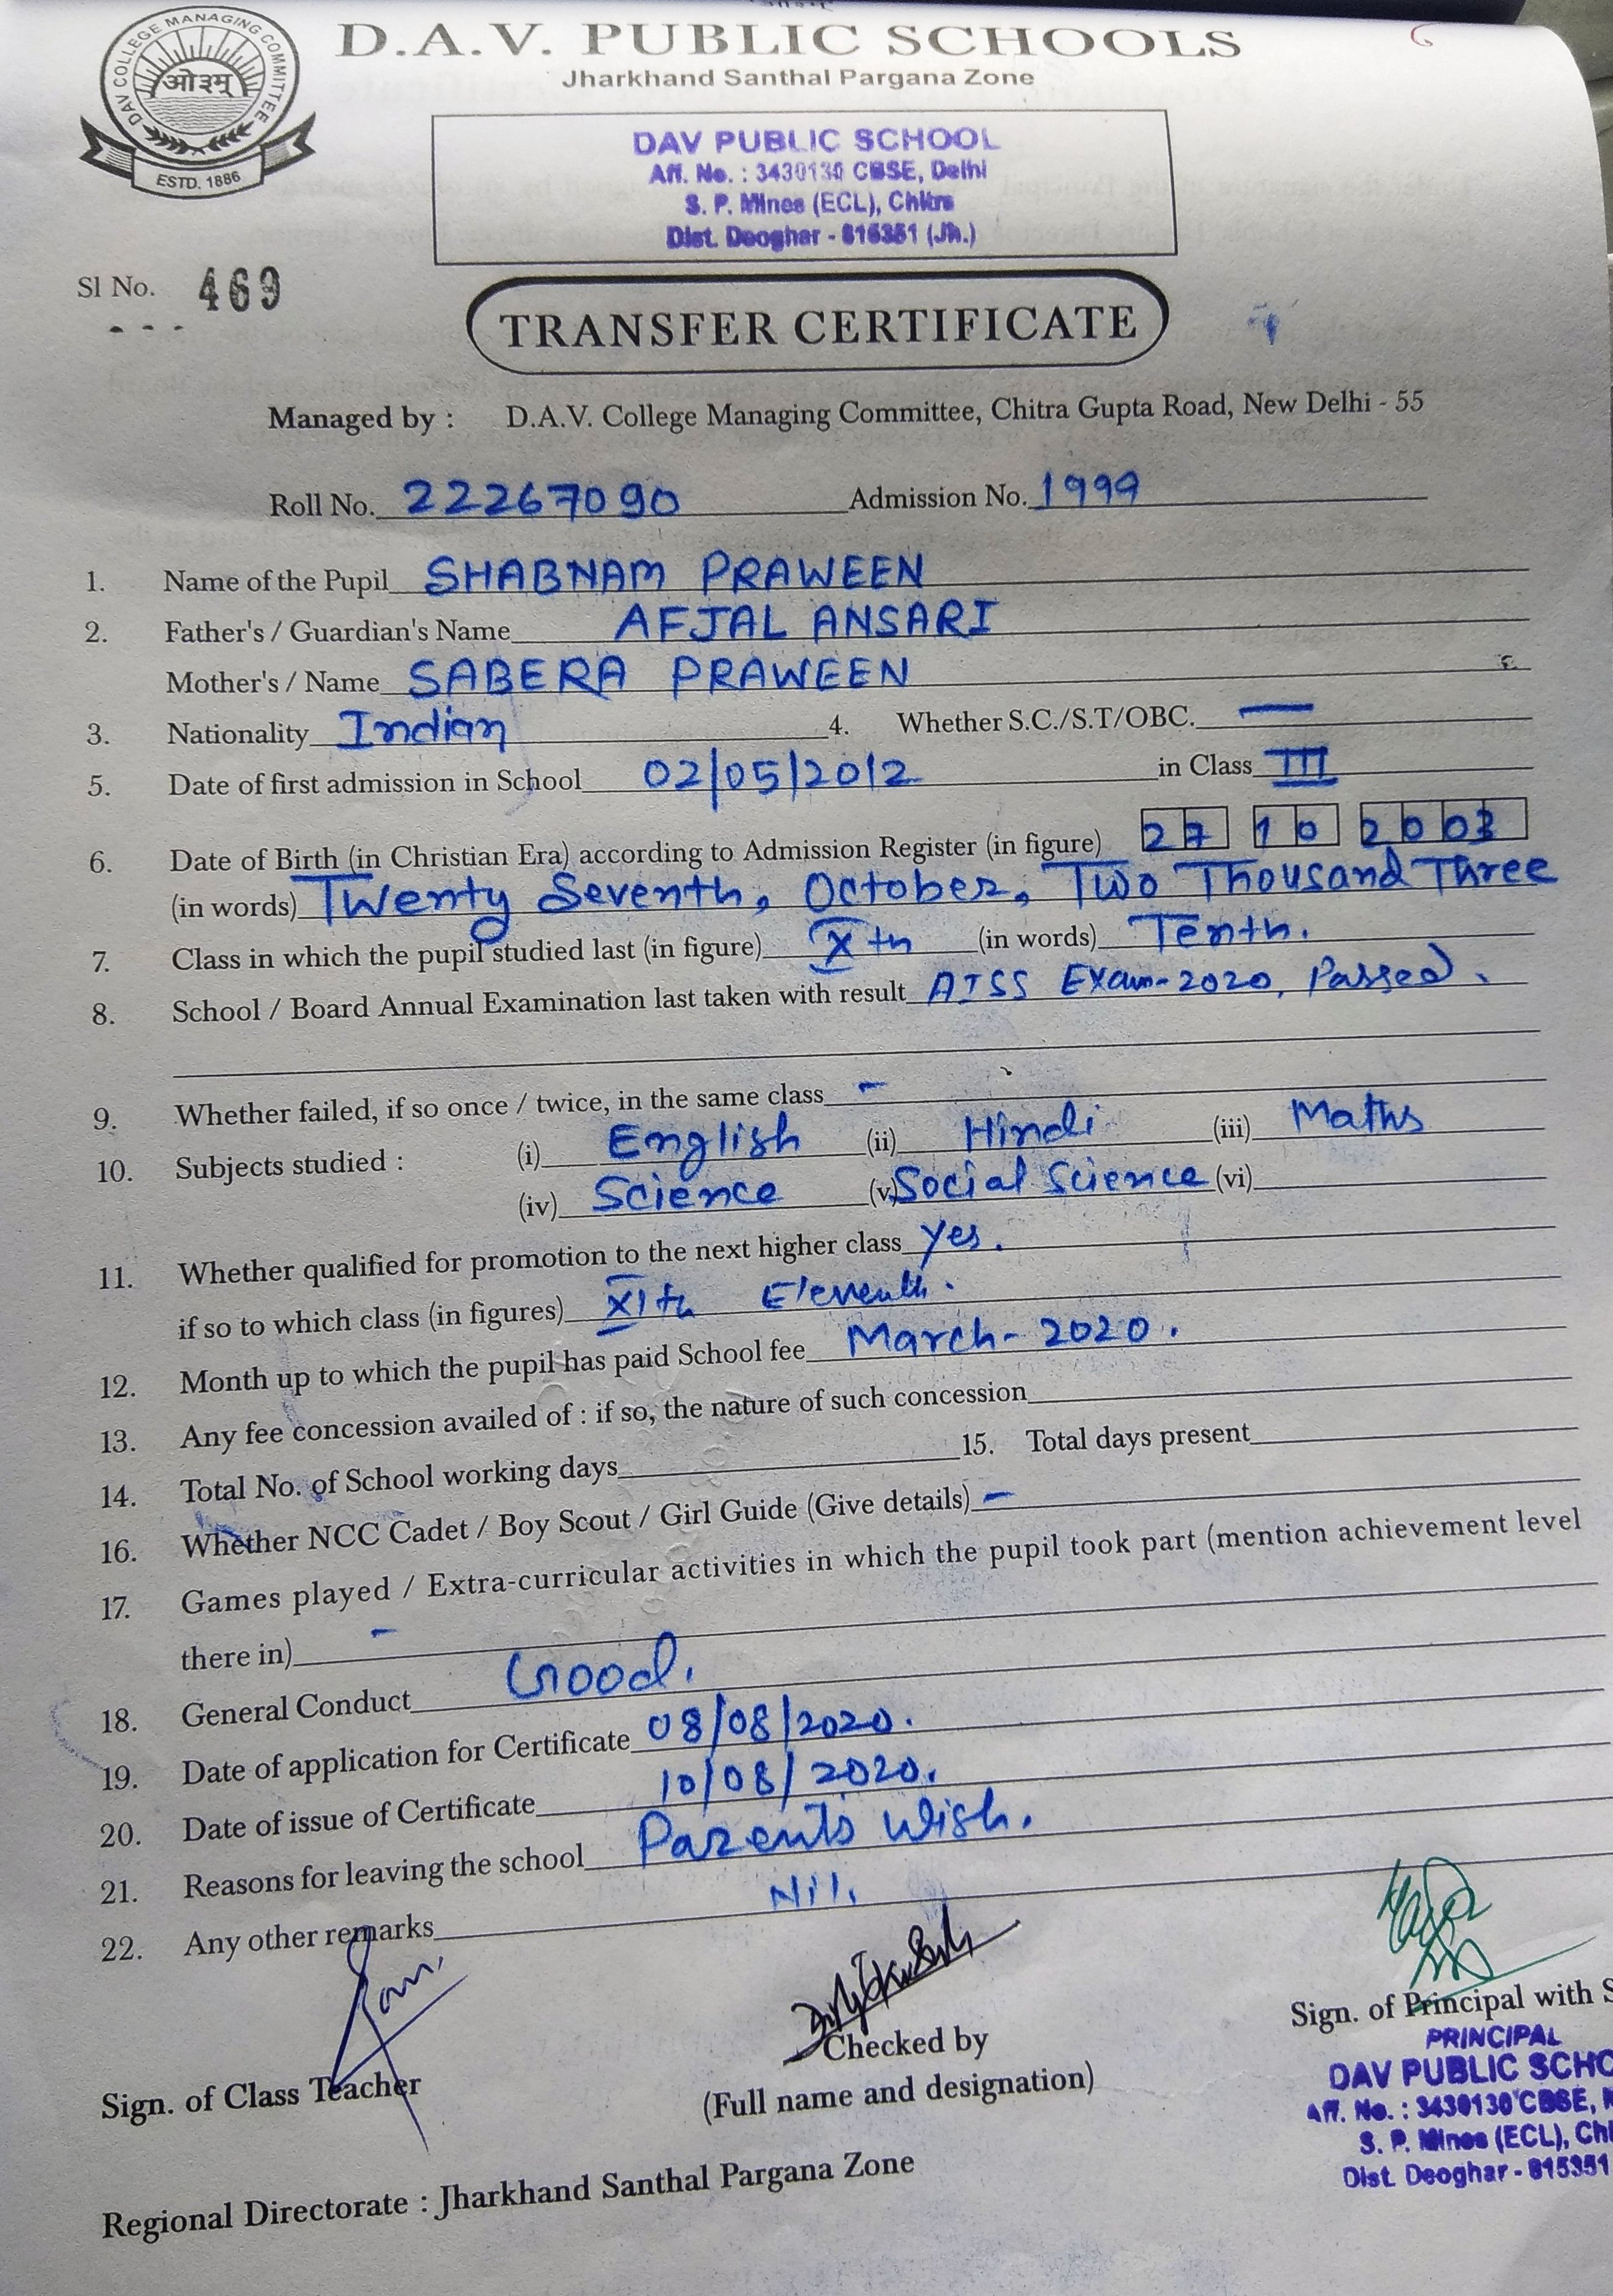 DAV COLLEGE MANAGING COMMITTEE
ओ३म्
ESTD. 1886
D.A.V. PUBLIC SCHOOLS
Jharkhand Santhal Pargana Zone
DAV PUBLIC SCHOOL
Aff. No. : 3430130 CBSE, Delhi
S. P. Mines (ECL), Chitra
Dist. Deoghar - 815351 (Jh.)
Sl No. 469
TRANSFER CERTIFICATE
Managed by : D.A.V. College Managing Committee, Chitra Gupta Road, New Delhi - 55
Roll No. 22267090 Admission No. 1999
1. Name of the Pupil SHABNAM PRAWEEN
2. Father's / Guardian's Name AFJAL ANSARI
Mother's / Name SABERA PRAWEEN
3. Nationality Indian 4. Whether S.C./S.T/OBC. —
5. Date of first admission in School 02/05/2012 in Class III
6. Date of Birth (in Christian Era) according to Admission Register (in figure) 27 10 2003
(in words) Twenty Seventh, October, Two Thousand Three
7. Class in which the pupil studied last (in figure) Xth (in words) Tenth.
8. School / Board Annual Examination last taken with result AISS Exam-2020, Passed.
9. Whether failed, if so once / twice, in the same class -
10. Subjects studied : (i) English (ii) Hindi (iii) Maths
(iv) Science (v) Social Science (vi)
11. Whether qualified for promotion to the next higher class Yes.
if so to which class (in figures) XIth Eleventh.
12. Month up to which the pupil has paid School fee March-2020.
13. Any fee concession availed of : if so, the nature of such concession
14. Total No. of School working days 15. Total days present
16. Whether NCC Cadet / Boy Scout / Girl Guide (Give details) -
17. Games played / Extra-curricular activities in which the pupil took part (mention achievement level
there in) -
18. General Conduct Good.
19. Date of application for Certificate 08/08/2020.
20. Date of issue of Certificate 10/08/2020.
21. Reasons for leaving the school Parents Wish.
22. Any other remarks Nil.
Sign. of Class Teacher
Checked by
(Full name and designation)
Sign. of Principal with S
PRINCIPAL
DAV PUBLIC SCHO
Aff. No. : 3430130 CBSE,
S. P. Mines (ECL), Chi
Dist. Deoghar - 815351
Regional Directorate : Jharkhand Santhal Pargana Zone